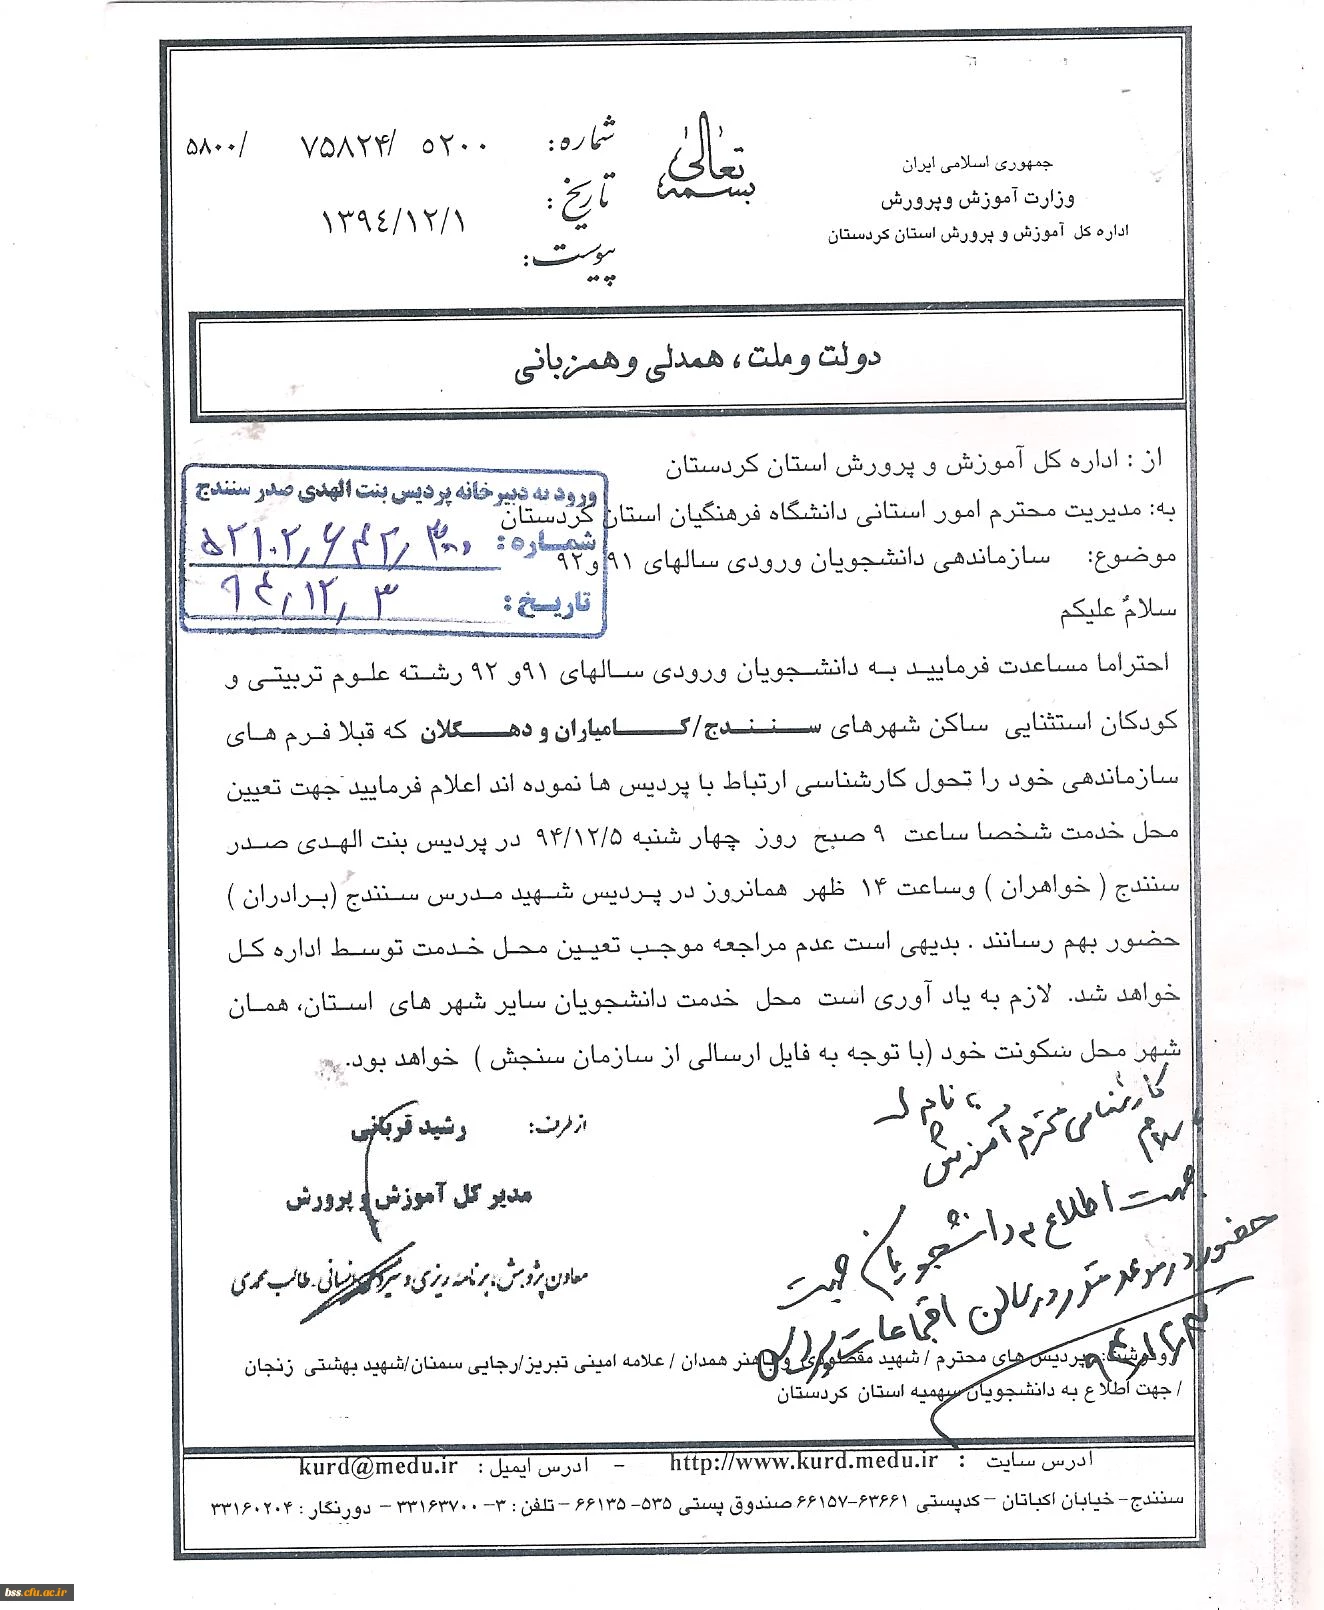 جمهوری اسلامی ایران
وزارت آموزش وپرورش
اداره کل آموزش و پرورش استان کردستان
بسمه تعالی
شماره: ۵۲۰۰ /۷۵۸۲۴ /۵۸۰۰
تاریخ: ۱۳۹۴/۱۲/۱
پیوست:
دولت و ملت، همدلی و همزبانی
از : اداره کل آموزش و پرورش استان کردستان
به: مدیریت محترم امور استانی دانشگاه فرهنگیان استان کردستان
موضوع: سازماندهی دانشجویان ورودی سالهای ۹۱ و۹۲
سلامٌ علیکم
ورود به دبیرخانه پردیس بنت الهدی صدر سنندج
شماره:
تاریخ: ۹۴,۱۲,۳
احتراما مساعدت فرمایید به دانشجویان ورودی سالهای ۹۱و ۹۲ رشته علوم تربیتی و
کودکان استثنایی ساکن شهرهای سنندج/کامیاران و دهگلان که قبلا فرم های
سازماندهی خود را تحول کارشناسی ارتباط با پردیس ها نموده اند اعلام فرمایید جهت تعیین
محل خدمت شخصا ساعت ۹ صبح روز چهار شنبه ۹۴/۱۲/۵ در پردیس بنت الهدی صدر
سنندج ( خواهران ) وساعت ۱۴ ظهر همانروز در پردیس شهید مدرس سنندج (برادران )
حضور بهم رسانند . بدیهی است عدم مراجعه موجب تعیین محل خدمت توسط اداره کل
خواهد شد. لازم به یاد آوری است محل خدمت دانشجویان سایر شهر های استان، همان
شهر محل سکونت خود (با توجه به فایل ارسالی از سازمان سنجش ) خواهد بود.
از طرف: رشید قربانی
مدیر کل آموزش و پرورش
معاون پژوهش، برنامه ریزی و نیروی انسانی - طالب محمدی
کارشناس محترم آموزش
با سلام
جهت اطلاع به دانشجویان جهت
حضور در موعد مقرر در سالن اجتماعات
رونوشت: پردیس های محترم / شهید مقصودی و باهنر همدان / علامه امینی تبریز/رجایی سمنان/شهید بهشتی زنجان
/ جهت اطلاع به دانشجویان سهمیه استان کردستان
آدرس سایت : http://www.kurd.medu.ir – آدرس ایمیل : kurd@medu.ir
سنندج- خیابان اکباتان – کدپستی ۶۳۶۶۱-۶۶۱۵۷ صندوق پستی ۵۳۵- ۶۶۱۳۵ – تلفن : ۳- ۳۳۱۶۳۷۰۰ – دورنگار : ۳۳۱۶۰۲۰۴
bss.cfu.ac.ir